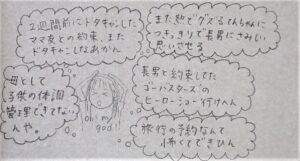 2週間前にドタキャンした
ママ友との約束、また
ドタキャンしなあかん
また熱でグズるてんちゃんに
つきっきりで長男にさみしい
思いさせる
母として
子供の体調
管理できてない
んや。
oh! my
god!
長男と約束してた
ゴーバスターズの
ヒーローショー行けへん
旅行の予約なんて
怖くてできひん